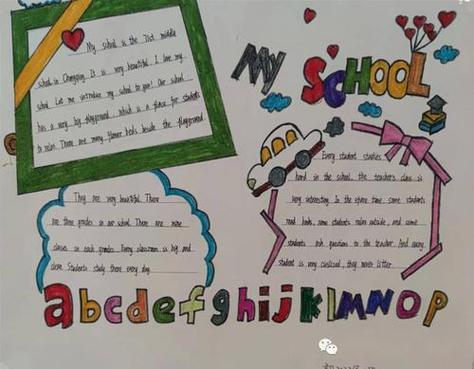 My school is the 71st middle
school in Chongqing. It is very beautiful. I love my
school. Let me introduce my school to you! Our school
has a very big playground, which is a place for students
to relax. There are many flower beds beside the playground
MY SCHOOL
They are very beautiful. There
are three grades in our school. There are nine
classes in each grades. Every classroom is big and
clean. Students study there every day.
Every student studies
hard in the school, the teacher's class is
very interesting. In the spare time, some students
read books, some students relax outside, and some
students ask questions to the teacher. And every
student is very civilized, they never litter.
abcdefghijklmnop